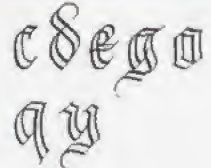 c d e g o
q y